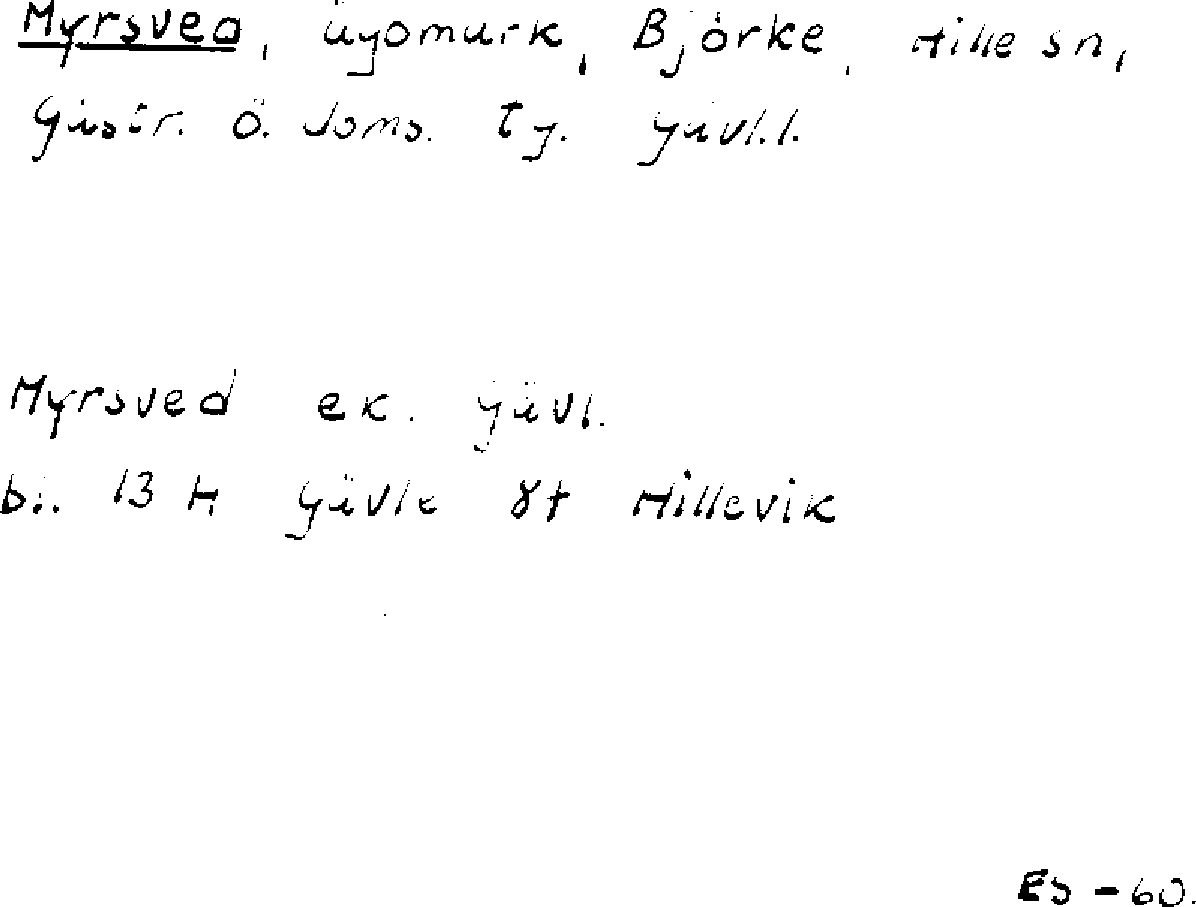 Myrsved, ägomark, Björke, Hille sn,
Gästr. ö. doms. tg. Gävl.l.
Myrsved ek. Gävl.
bl. 13 H Gävle 8f Hillevik
ES -60.